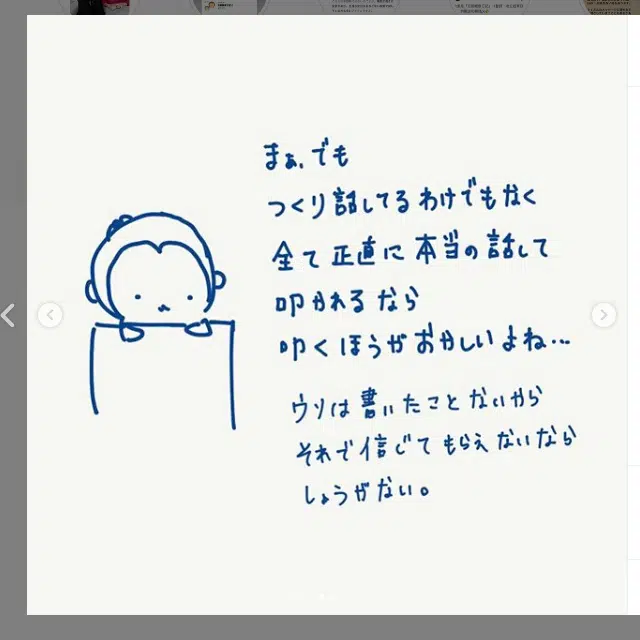 まぁ、でも
つくり話してるわけでもなく
全て正直に本当の話して
叩かれるなら
叩くほうがおかしいよね…
ウソは書いたことないから
それで信じてもらえないなら
しょうがない。